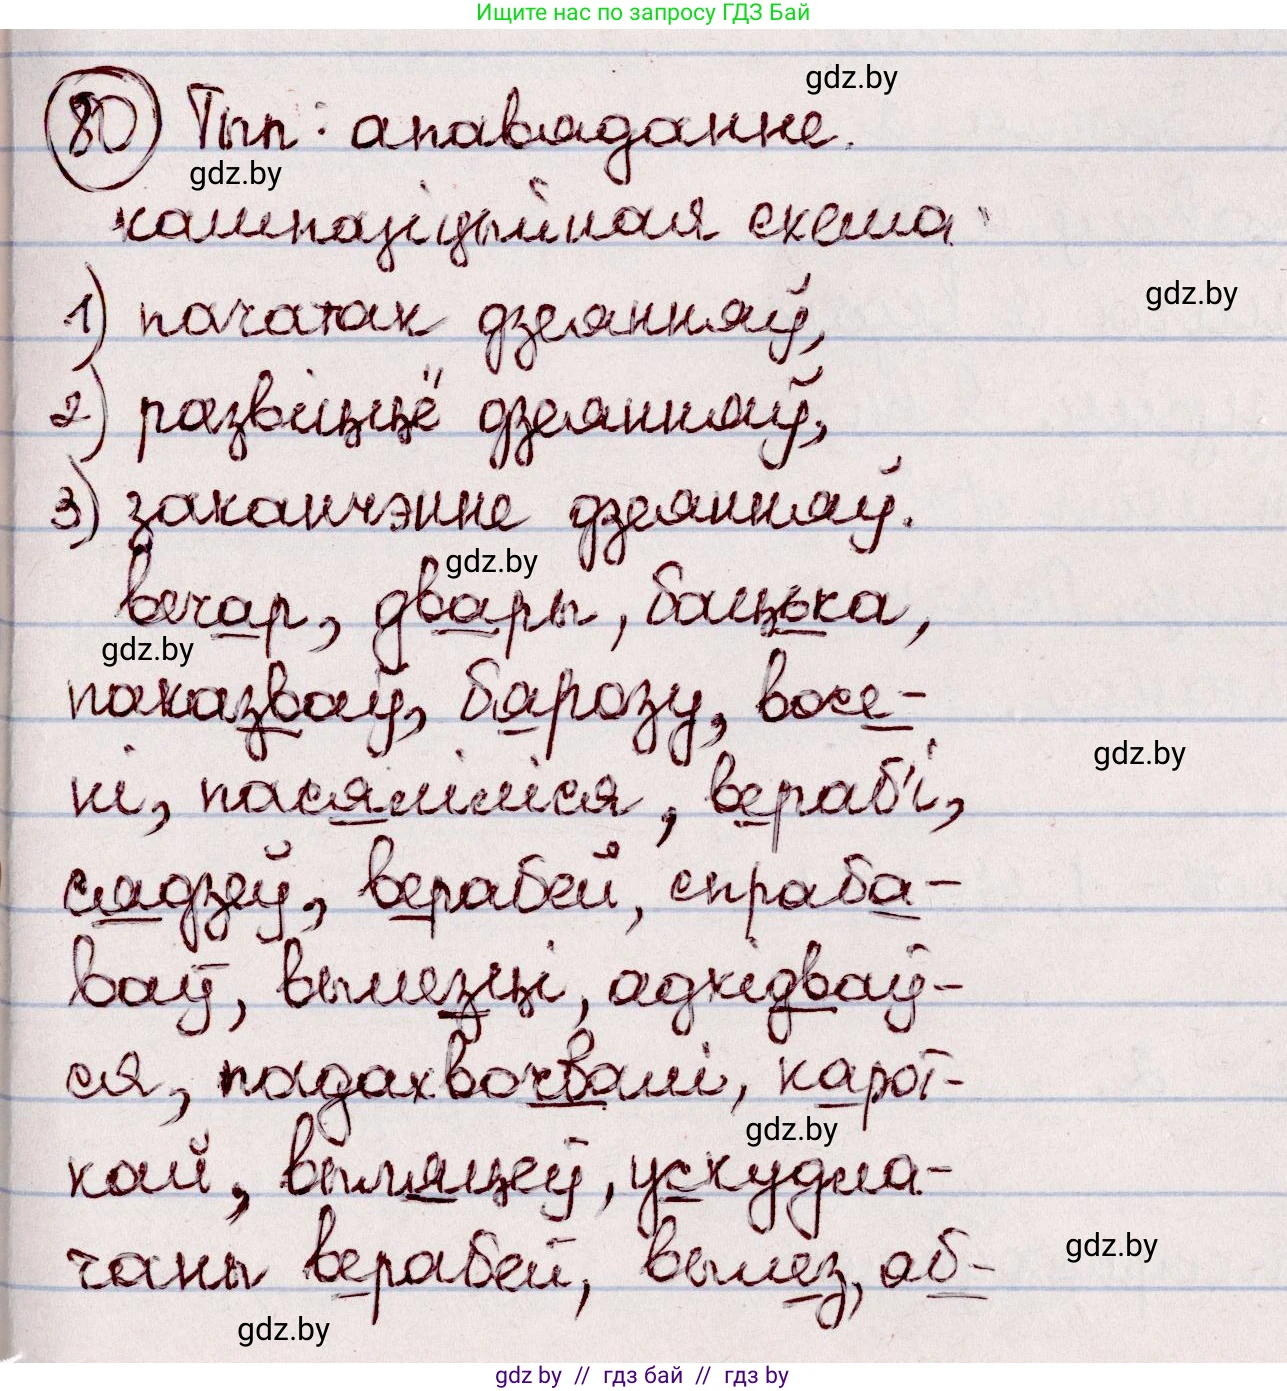 Ищите нас по запросу ГДЗ Бай
gdz.by
80 Тып: апавяданне.
gdz.by
кампазіцыйная схема:
gdz.by
1) пачатак дзеянняў,
2) развіццё дзеянняў,
3) заканчэнне дзеянняў.
gdz.by
вечар, двары, бацька,
gdz.by
паказваў, баразу, восе-
gdz.by
ні, пасяліліся, вераб'і,
сядзеў, верабей, спраба-
ваў, вылезці, адкідваў-
ся, падахвочвалі, карот-
gdz.by
кай, выляцеў, ускудла-
gdz.by
чаны верабей, вылез, аб-
gdz.by
gdz by // гдз бай // гдз by